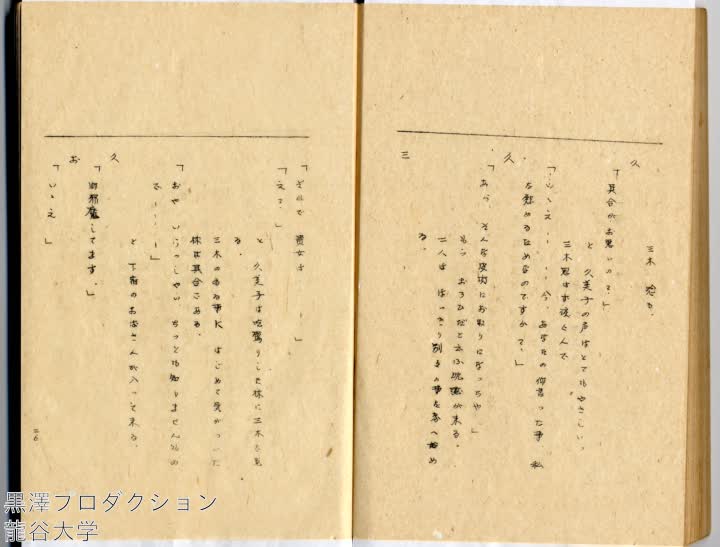 三木　　黙々。
久
「具合がお悪いの？」
と　久美子の声はとてもやさしい。
三木君は涙ぐんで
「いゝえ‥‥今、あなたの仰言った事　私
を慰めるためなのですか？」
久
「あら、そんな皮肉にお取りになっちゃ」
もう　おうむだと云ふ
三
二人は　はっきり別る事を考へ始め
る。
「それで　貴女は　‥‥」
「えゝ。」
と　久美子は吃驚りした様に三木を見
る。
三木のゐる事に　はじめて気がついた
様は具合さある。
「おや　いらっしゃい　ちっとも知りませんもの
で‥‥‥」
と　下宿のおばさんが入って来る。
久
「御邪魔してます。」
お
「いゝえ」
二六
黒澤プロダクション
龍谷大学